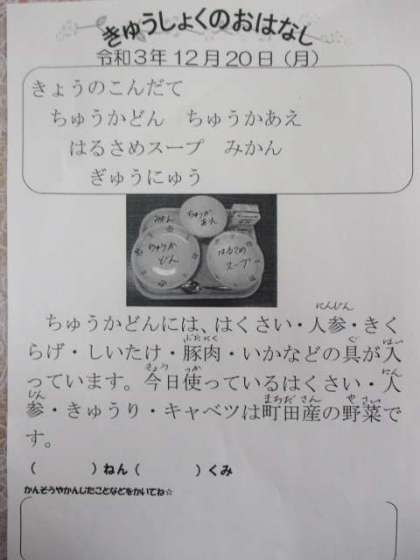 きゅうしょくのおはなし
令和3年12月20日(月)
きょうのこんだて
ちゅうかどん ちゅうかあえ
はるさめスープ みかん
ぎゅうにゅう
みかん
ちゅうか
あえ
ちゅうか
どん
はるさめ
スープ
ちゅうかどんには、はくさい・人参・きく
らげ・しいたけ・豚肉・いかなどの具が入
っています。今日使っているはくさい・人
参・きゅうり・キャベツは町田産の野菜で
す。
( )ねん( )くみ
かんそうやかんじたことなどをかいてね☆